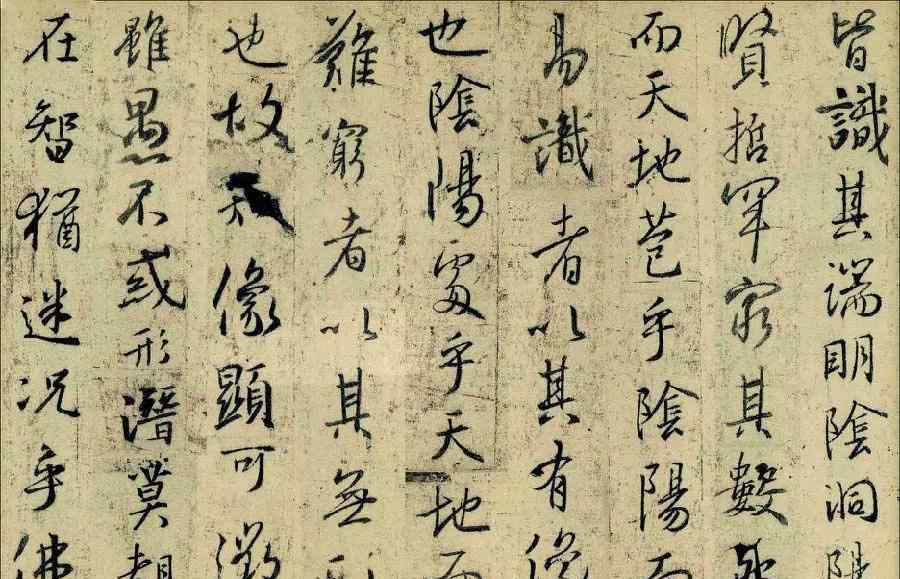 皆識其端明陰洞陽
賢哲罕窮其數
而天地苞乎陰陽而
易識者以其有像
也陰陽處乎天地而
難窮者以其無形
也故知像顯可徵
雖愚不惑形潛莫
在智猶迷況乎佛